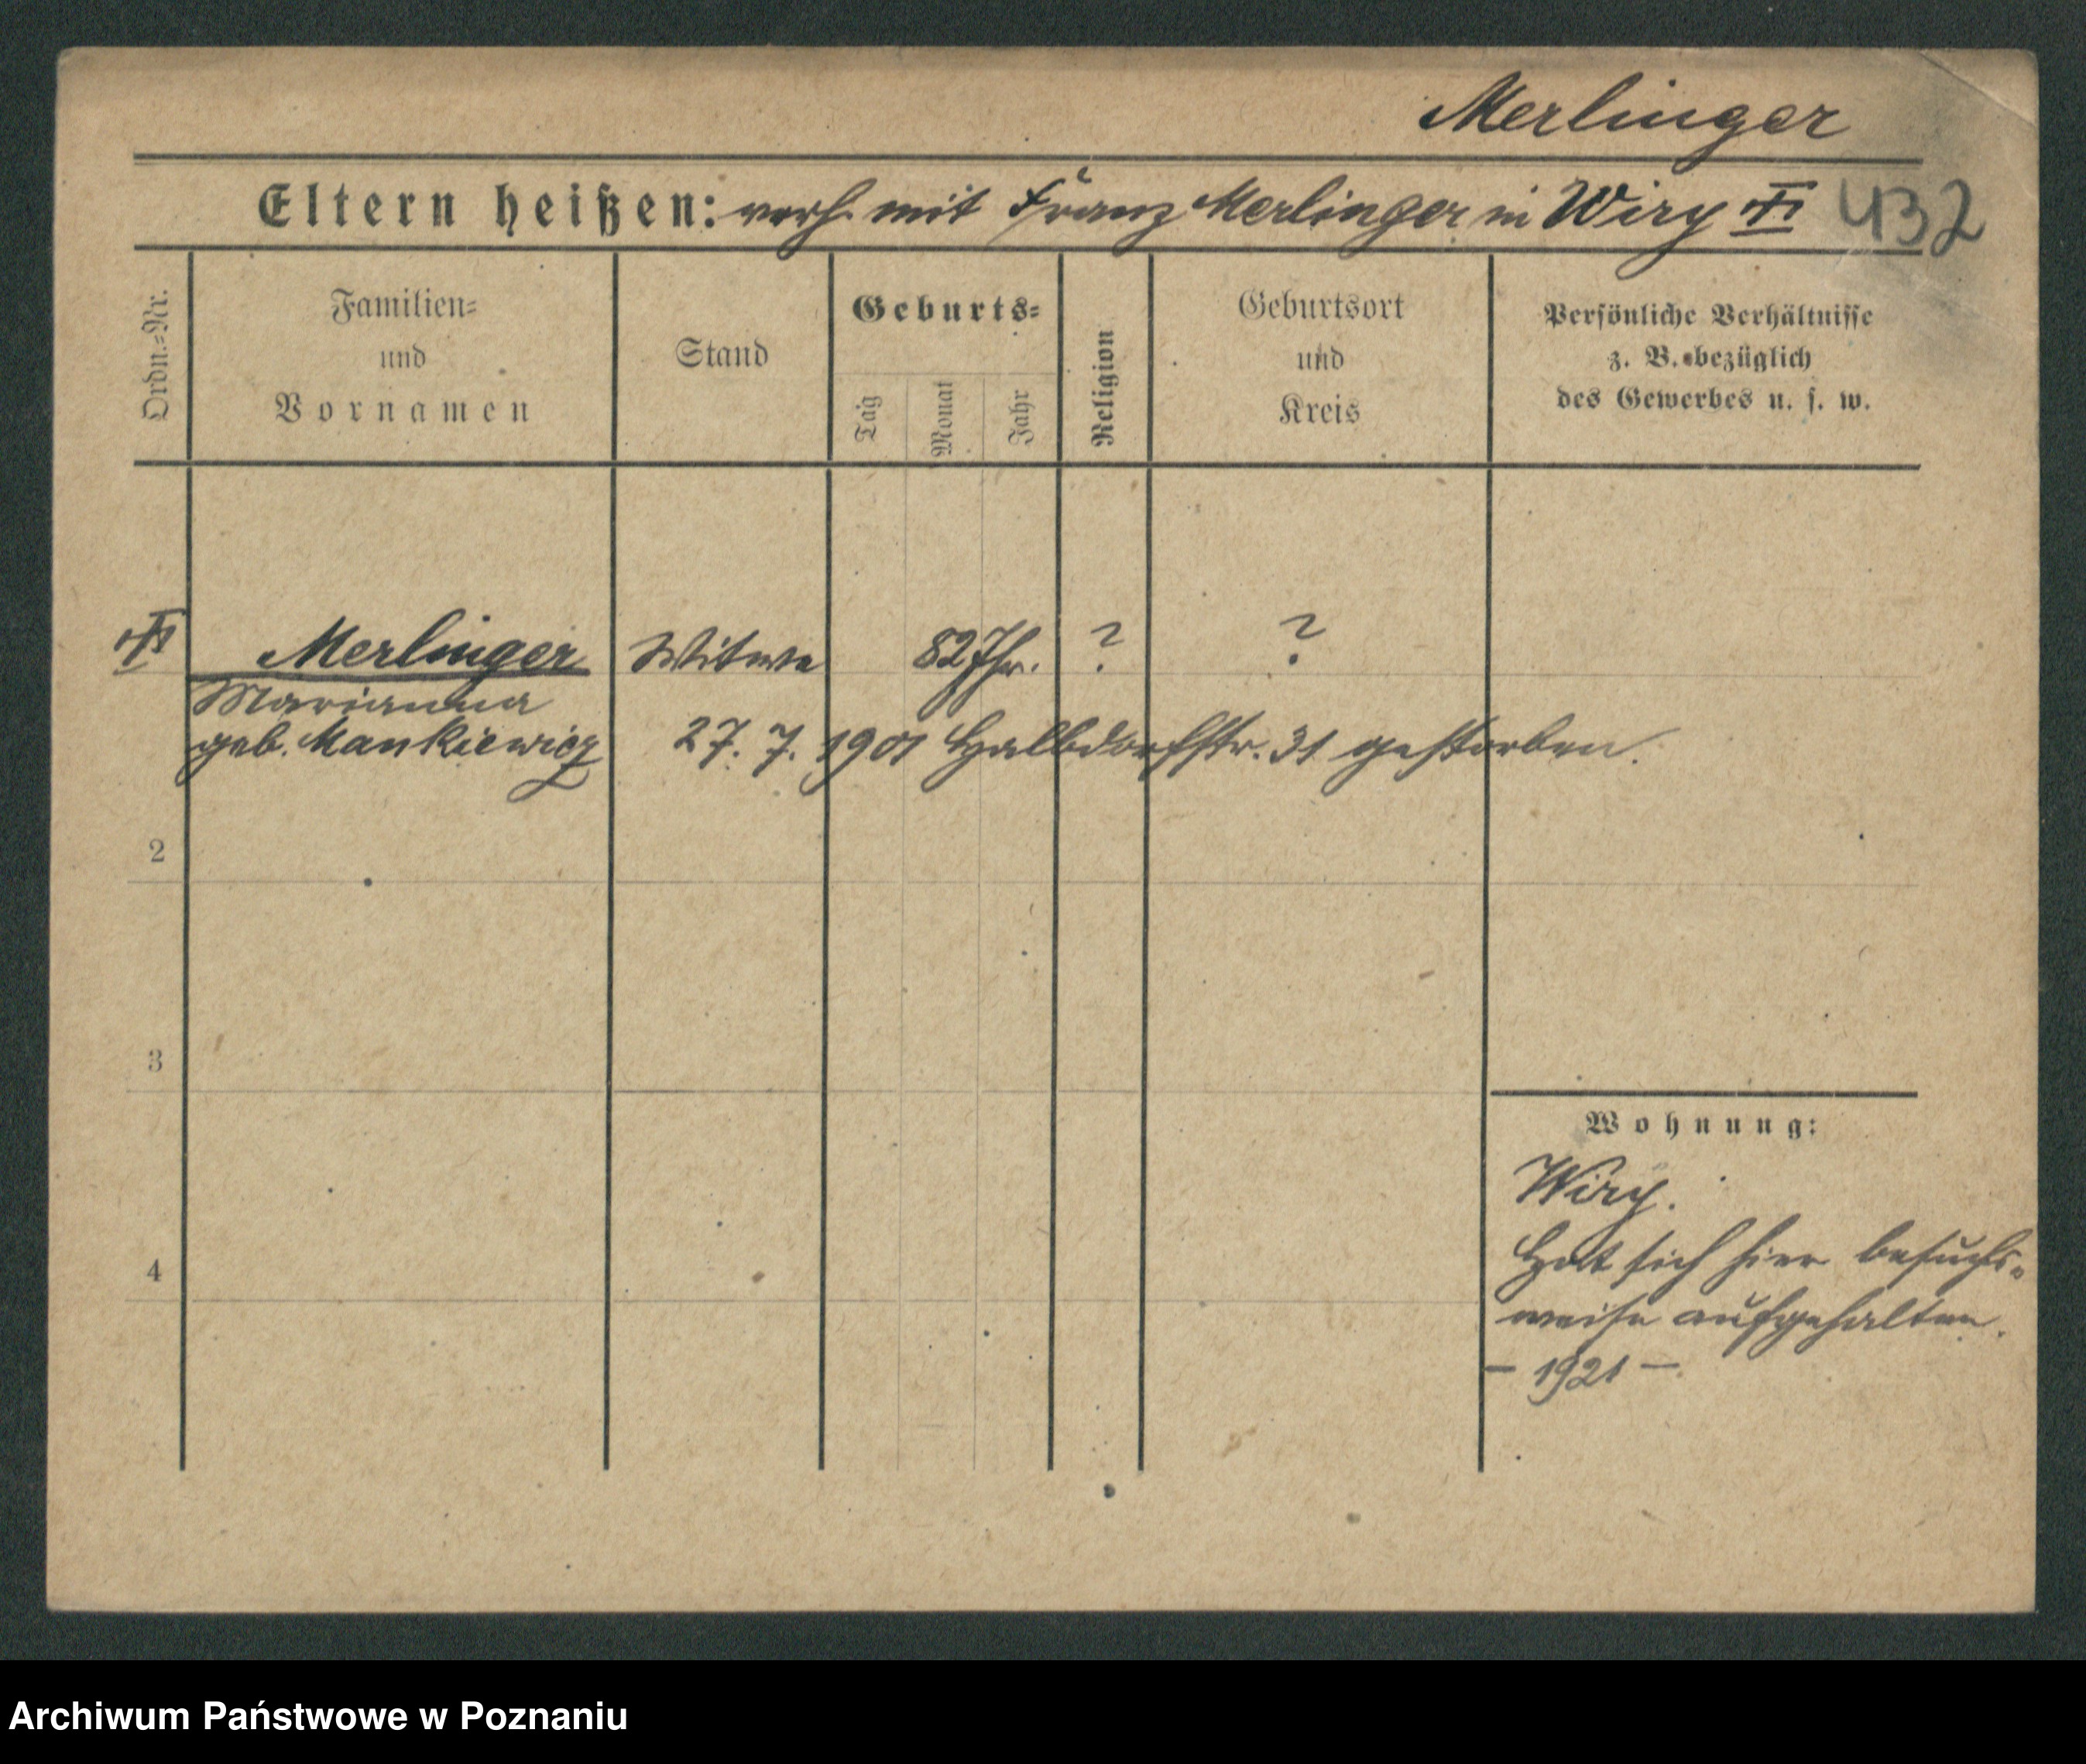 Merlinger
Eltern heißen: verh. mit Franz Merlinger in Wiry 432
Ordn.-Nr.
Familien-
und
Vornamen
Stand
Geburts-
Tag
Monat
Jahr
Religion
Geburtsort
und
Kreis
Persönliche Verhältnisse
z. B. bezüglich
des Gewerbes u. s. w.
Merlinger Witwe 82 Jhr. ? ?
Marianna
geb. Mankiewicz 27. 7. 1901 Halbdorfstr. 31 gestorben.
2
3
4
Wohnung:
Wiry.
Hat sich hier besuchs-
weise aufgehalten.
– 1921 –
Archiwum Państwowe w Poznaniu